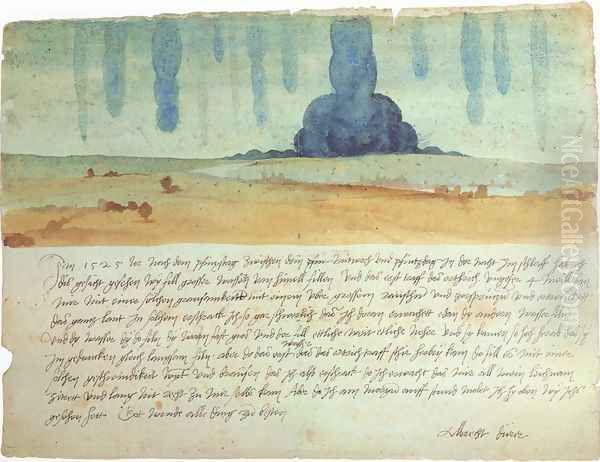 Im 1525 Jor nach dem pfinxstag zwischen dem Mitwoch und pfintzdag in der nacht im schlaff hab ich
dis gesicht gesehen wy fill grosser wassern vom himell fillen Und das erst traff das erthrich ungefer 4 meill fan
mir mit einer solchen grausamkeitt mit einem uber grossem rauschen und zersprützen und ertrenckett
das gantz lant In solchem erschrack ich so gar schwerlich das ich doran erwachett
dy wasser dy do filen dy warn fast gros und der fill ettliche weit etliche neher und sy kamen so hoch herab das sy
im gedancken gleich langsam filn aber do das erst wasser das das erthrich traff schir herbey kam do fill es mit einer
solchen geschwindikeit wynt und braussen das ich also erschrack do ich erwacht das mir all mein leichnam
zitrett und lang nit recht zu mir selbs kam Aber do ich am morgen auff stund molet ich hy oben wy ichs
gesehen hett Got wende alle ding zu besten
Albrecht dürer
NiceArtGallery.com